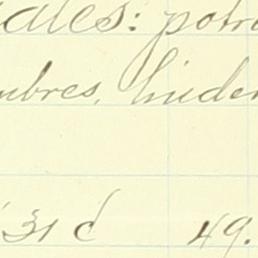 ales: potr
mbres, hider
31 d 49.